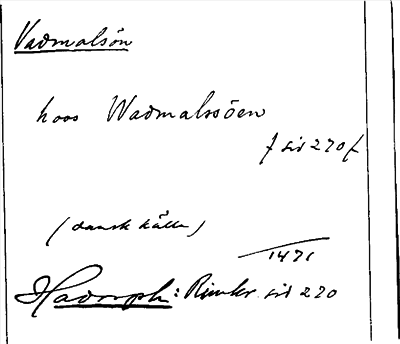 Vadmalsön
hoos Wadmalssöen
f sid 270 f
(dansk källa)
1471
Hadorph: Rimkr. sid 270